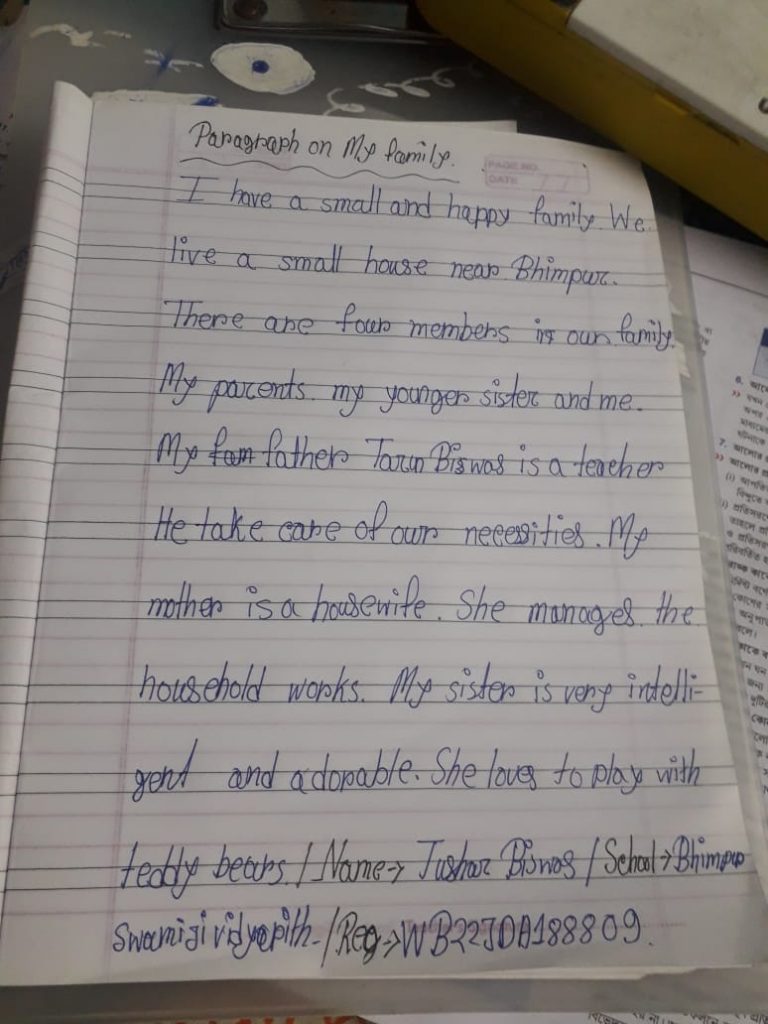 Paragraph on My family.
PAGE NO.
DATE
I have a small and happy family. We
live a small house near Bhimpur.
There are four members in our family.
My parents. my younger sister and me.
My fam father Tarun Biswas is a teacher
He take care of our necessities. My
mother is a housewife. She manages the
household works. My sister is very intelli-
gent and adorable. She loves to play with
teddy bears. / Name→ Tushar Biswas / School→ Bhimpur
Swamiji vidyapith- / Reg→ WB22JDA188809.